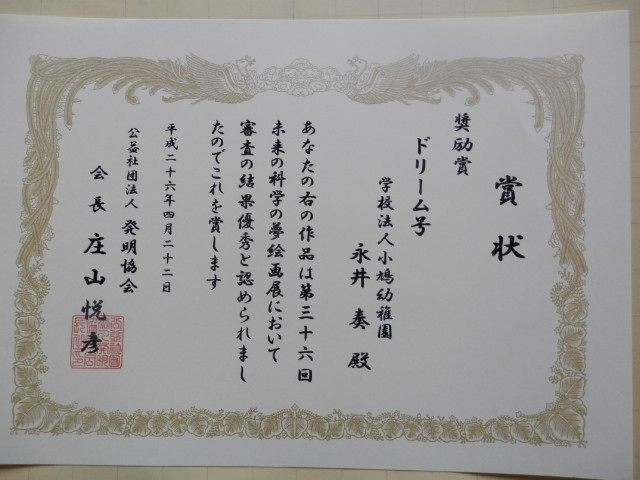 賞状
奨励賞
ドリーム号
学校法人小鳩幼稚園
永井 奏 殿
あなたの右の作品は第三十六回
未来の科学の夢絵画展において
審査の結果優秀と認められまし
たのでこれを賞します
平成二十六年四月二十二日
公益社団法人 発明協会
会長 庄山悦彦